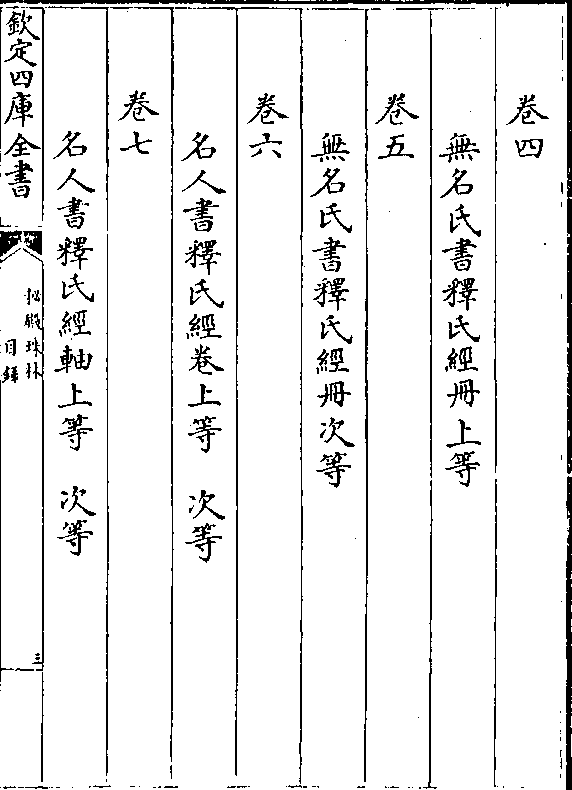 卷四
無名氏書釋氏經冊上等
卷五
無名氏書釋氏經冊次等
卷六
名人書釋氏經卷上等　次等
卷七
名人書釋氏經軸上等　次等
欽定四庫全書
秘殿珠林
目錄
三